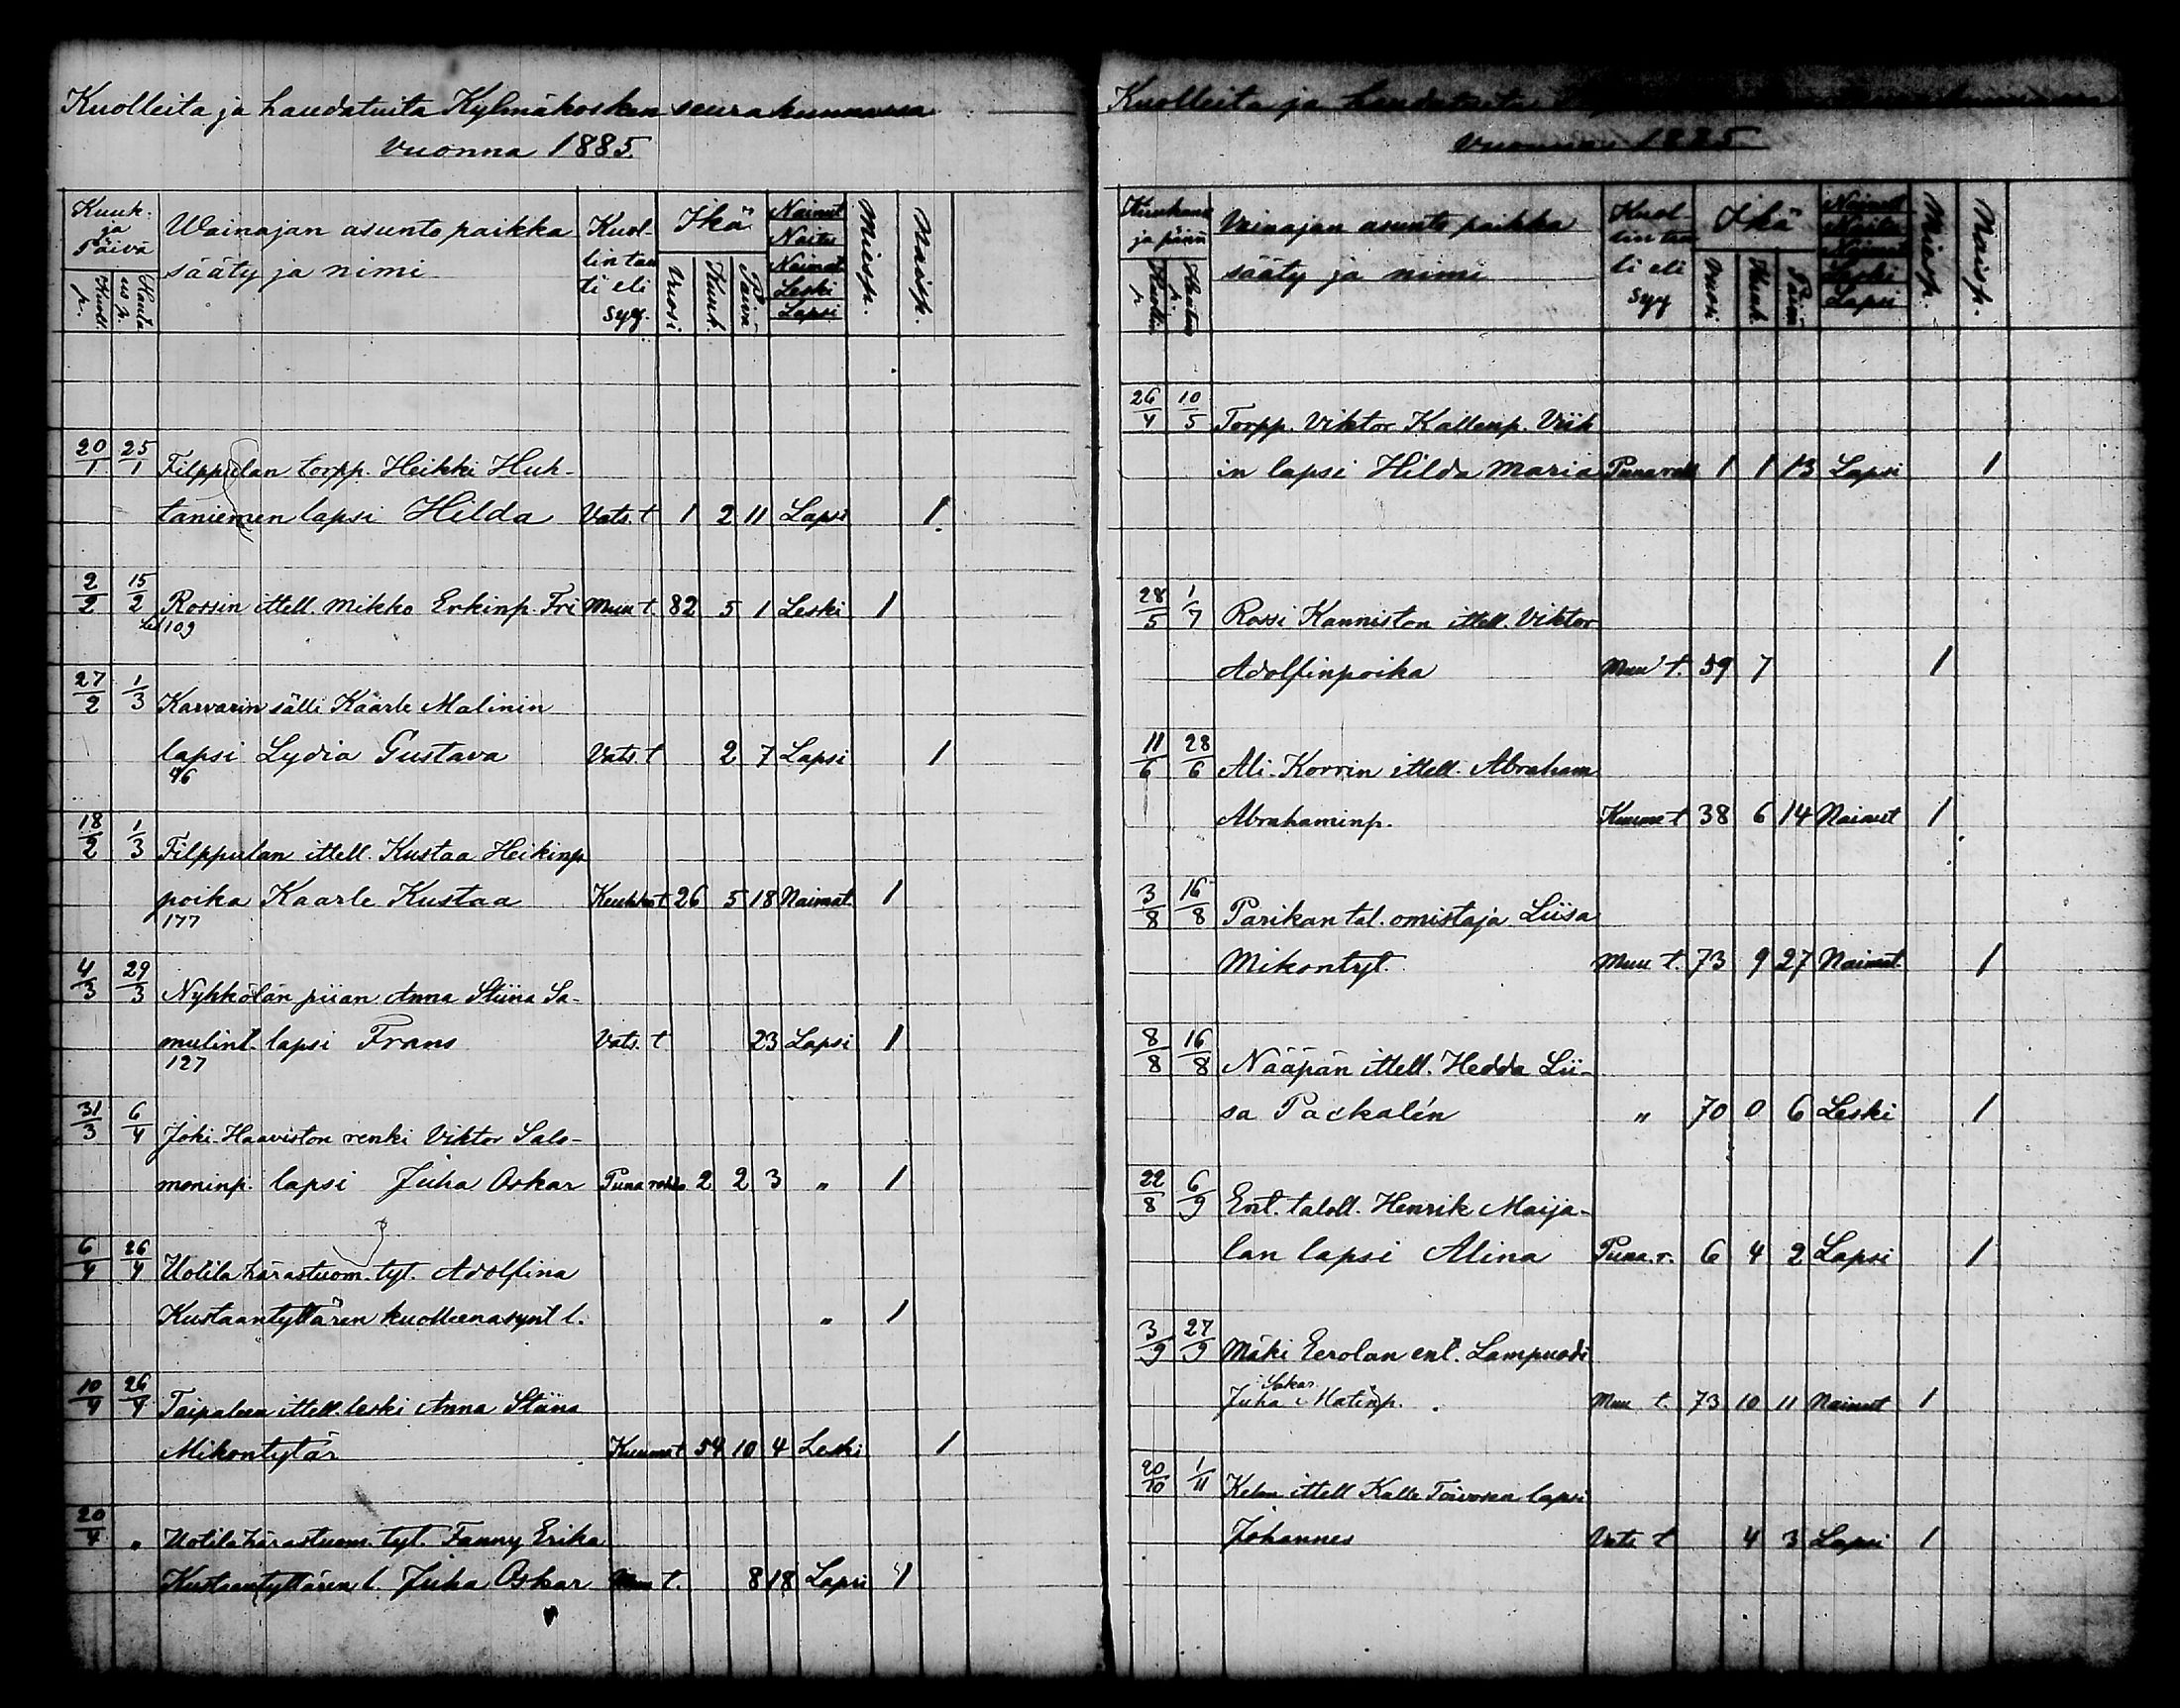 Kuolleita ja haudatuita Kylmäkosken seurakunnassa
vuonna 1885.
Kuuk. ja Päivä
Kuol. p.
Hautaus p.
Wainajan asunto paikka
sääty ja nimi
Kuol-
lin tau
ti eli
syy.
Ikä
Vuosi
Kuuk.
Päivä
Nainut
Naitu
Naimat.
Leski
Lapsi
Miesp.
Naisp.
20/1 25/1 Filppulan torpp. Heikki Huh-
taniemen lapsi Hilda Vats. t 1 2 11 Lapsi 1
2/2 15/2 Rossin ittell. Mikko Erkinp. Fri Muu t. 82 5 1 Leski 1
109
27/2 1/3 Karvarin sälli Kaarle Malinin
lapsi Lydia Gustava Vats. t 2 7 Lapsi 1
46
18/2 1/3 Filppulan ittell. Kustaa Heikinp
poika Kaarle Kustaa Keuhkot 26 5 18 Naimat. 1
177
4/3 29/3 Nyhkölän piian Anna Stiina Sa-
mulint. lapsi Frans Vats. t 23 Lapsi 1
127
31/3 6/4 Joki-Haaviston renki Viktor Salo-
moninp. lapsi Juha Oskar Punarokko 2 2 3 " 1
6/4 26/4 Uotila härastuom. tyt. Adolfina
Kustaantyttären kuolleenasynt l. " 1
10/4 26/4 Taipaleen ittell. leski Anna Stiina
Mikontytär Kuumat 54 10 4 Leski 1
20/4 " Uotila härastuom. tyt. Fanny Erika
Kustaantyttären l. Juha Oskar Muu t. 8 18 Lapsi 1
Kuolleita ja haudatuita
vuonna 1885
Kuukausi
ja päivä
Kuollin p
Hautaus p.
Vainajan asunto paikka
sääty ja nimi
Kuol-
lin tau
ti eli
syy
Ikä
Vuosi
Kuuk.
Päivä
Nainut
Naitu
Naimat
Leski
Lapsi
Miesp.
Naisp.
26/4 10/5 Torpp. Viktor Kallenp. Viik
in lapsi Hilda Maria Punarok 1 1 13 Lapsi 1
28/5 1/7 Rossi Kanniston ittell. Viktor
Adolfinpoika Muu t. 59 7 1
11/6 28/6 Ali-Korrin ittell. Abraham
Abrahaminp. Kuume t 38 6 14 Nainut 1
3/8 16/8 Parikan tal. omistaja Liisa
Mikontyt. Muu t. 73 9 27 Naimat. 1
8/8 16/8 Nääpän ittell. Hedda Lii-
sa Packalén " 70 0 6 Leski 1
22/8 6/9 Ent. taloll. Henrik Maija-
lan lapsi Alina Puna. r. 6 4 2 Lapsi 1
3/9 27/9 Mäki Eerolan ent. Lampuodi
Juha Matinp. Muu t. 73 10 11 Nainut 1
20/10 1/11 Kelan ittell Kalle Toivosen lapsi
Johannes Vats t 4 3 Lapsi 1